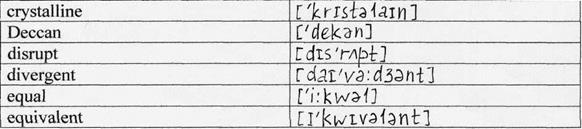 crystalline ['krɪstəlaɪn]
Deccan ['dekən]
disrupt [dɪs'rʌpt]
divergent [daɪ'və:dʒənt]
equal ['i:kwəl]
equivalent [ɪ'kwɪvələnt]